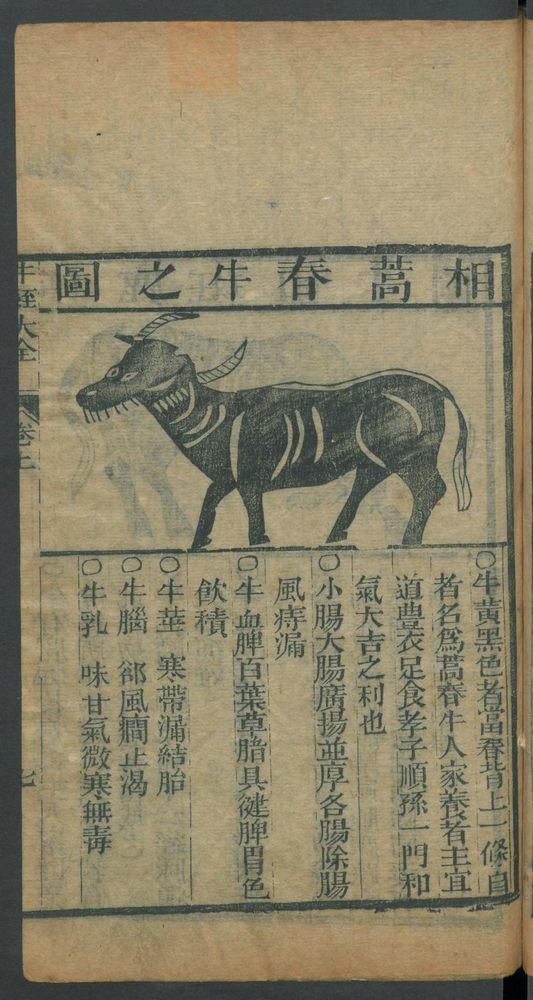 相蒿春牛之圖
○牛黃黑色者當春背上一條自
者名爲蒿春牛人家養者主宜
道豊衣足食孝子順孫一門和
氣大吉之利也
○小腸大腸廣揚並厚各腸除腸
風痔漏
○牛血脾百葉草臍具健脾胃色
飲積
○牛莖 寒帶漏結胎
○牛腦 郤風癎止渴
○牛乳 味甘氣微寒無毒
牛經大全
卷上
七